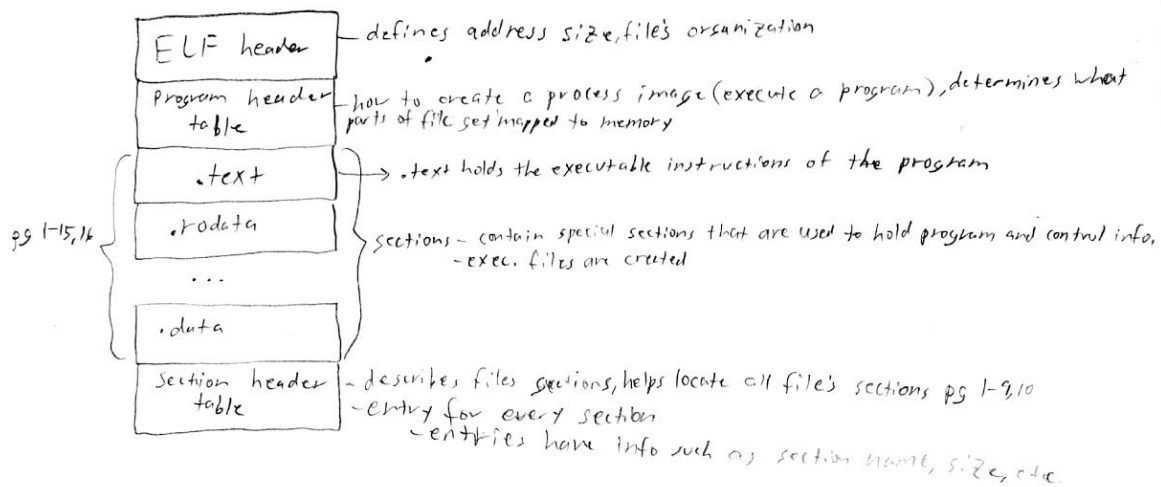 ELF header
- defines address size, file's organization
Program header
table
- how to create a process image (execute a program), determines what
parts of file get mapped to memory
.text
→ .text holds the executable instructions of the program
pg 1-15,16
.rodata
sections - contain special sections that are used to hold program and control info.
- exec. files are created
...
.data
Section header
table
- describes files sections, helps locate all file's sections pg 1-9,10
- entry for every section
- entries have info such as section name, size, etc.